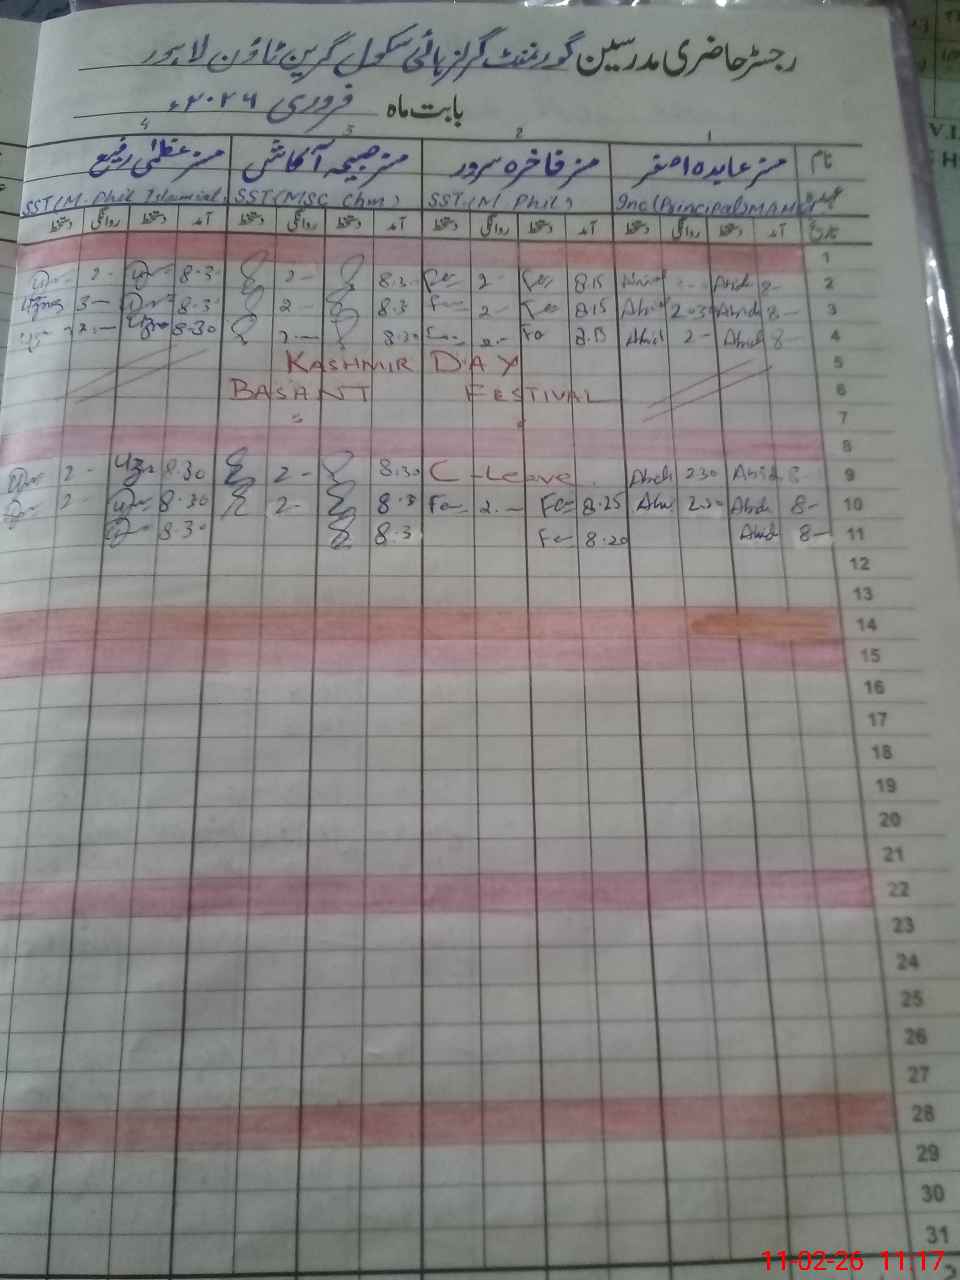 رجسٹر حاضری مدرسین گورنمنٹ گرلز ہائی سکول گرین ٹاؤن لاہور
بابت ماہ فروری ۲۰۲۶ء
1 2 3 4
نام مسز عابدہ اصغر مسز فاخرہ سرور مسز صبیحہ آکاش مسز عظمیٰ رفیع
عہدہ Inc(Principal) SST(M Phil) SST(MSC Chm) SST(M.Phil Islamiat)
تاریخ آمد دستخط روانگی دستخط آمد دستخط روانگی دستخط آمد دستخط روانگی دستخط آمد دستخط روانگی دستخط
1
2 8- Abid 8.15 Fa 2- Fa 8.30 2- 8.30 2-
3 8- Abid 2.30 Abid 8.15 Fa 2- Fa 8.3 2- 8.30 3- Uzma
4 8- Abid 2- Abid 8.15 Fa 2- 8.30 2- 8.30 Uzma 2-
5 KASHMIR DAY
6 BASANT FESTIVAL
7 =
8
9 8- Abid 230 Abid C-Leave. 8.30 2- 8.30 Uzma 2-
10 8- Abid 2.30 Abid 8.25 Fa 2- Fa 8.3 2- 8.30 2-
11 8- Abid 8.20 Fa 8.3 8.30
12
13
14
15
16
17
18
19
20
21
22
23
24
25
26
27
28
29
30
31
11-02-26 11:17